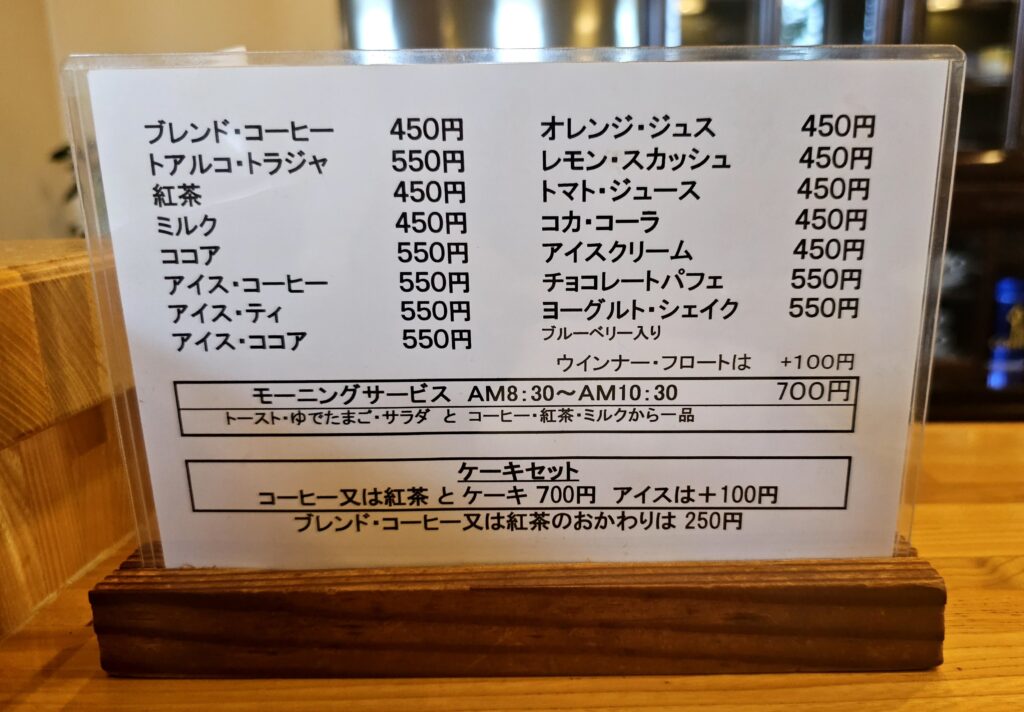 ブレンド・コーヒー 450円
トアルコ・トラジャ 550円
紅茶 450円
ミルク 450円
ココア 550円
アイス・コーヒー 550円
アイス・ティ 550円
アイス・ココア 550円
オレンジ・ジュス 450円
レモン・スカッシュ 450円
トマト・ジュース 450円
コカ・コーラ 450円
アイスクリーム 450円
チョコレートパフェ 550円
ヨーグルト・シェイク 550円
ブルーベリー入り
ウインナー・フロートは +100円
モーニングサービス AM8:30～AM10:30 700円
トースト・ゆでたまご・サラダ と コーヒー・紅茶・ミルクから一品
ケーキセット
コーヒー又は紅茶 と ケーキ 700円 アイスは＋100円
ブレンド・コーヒー又は紅茶のおかわりは 250円